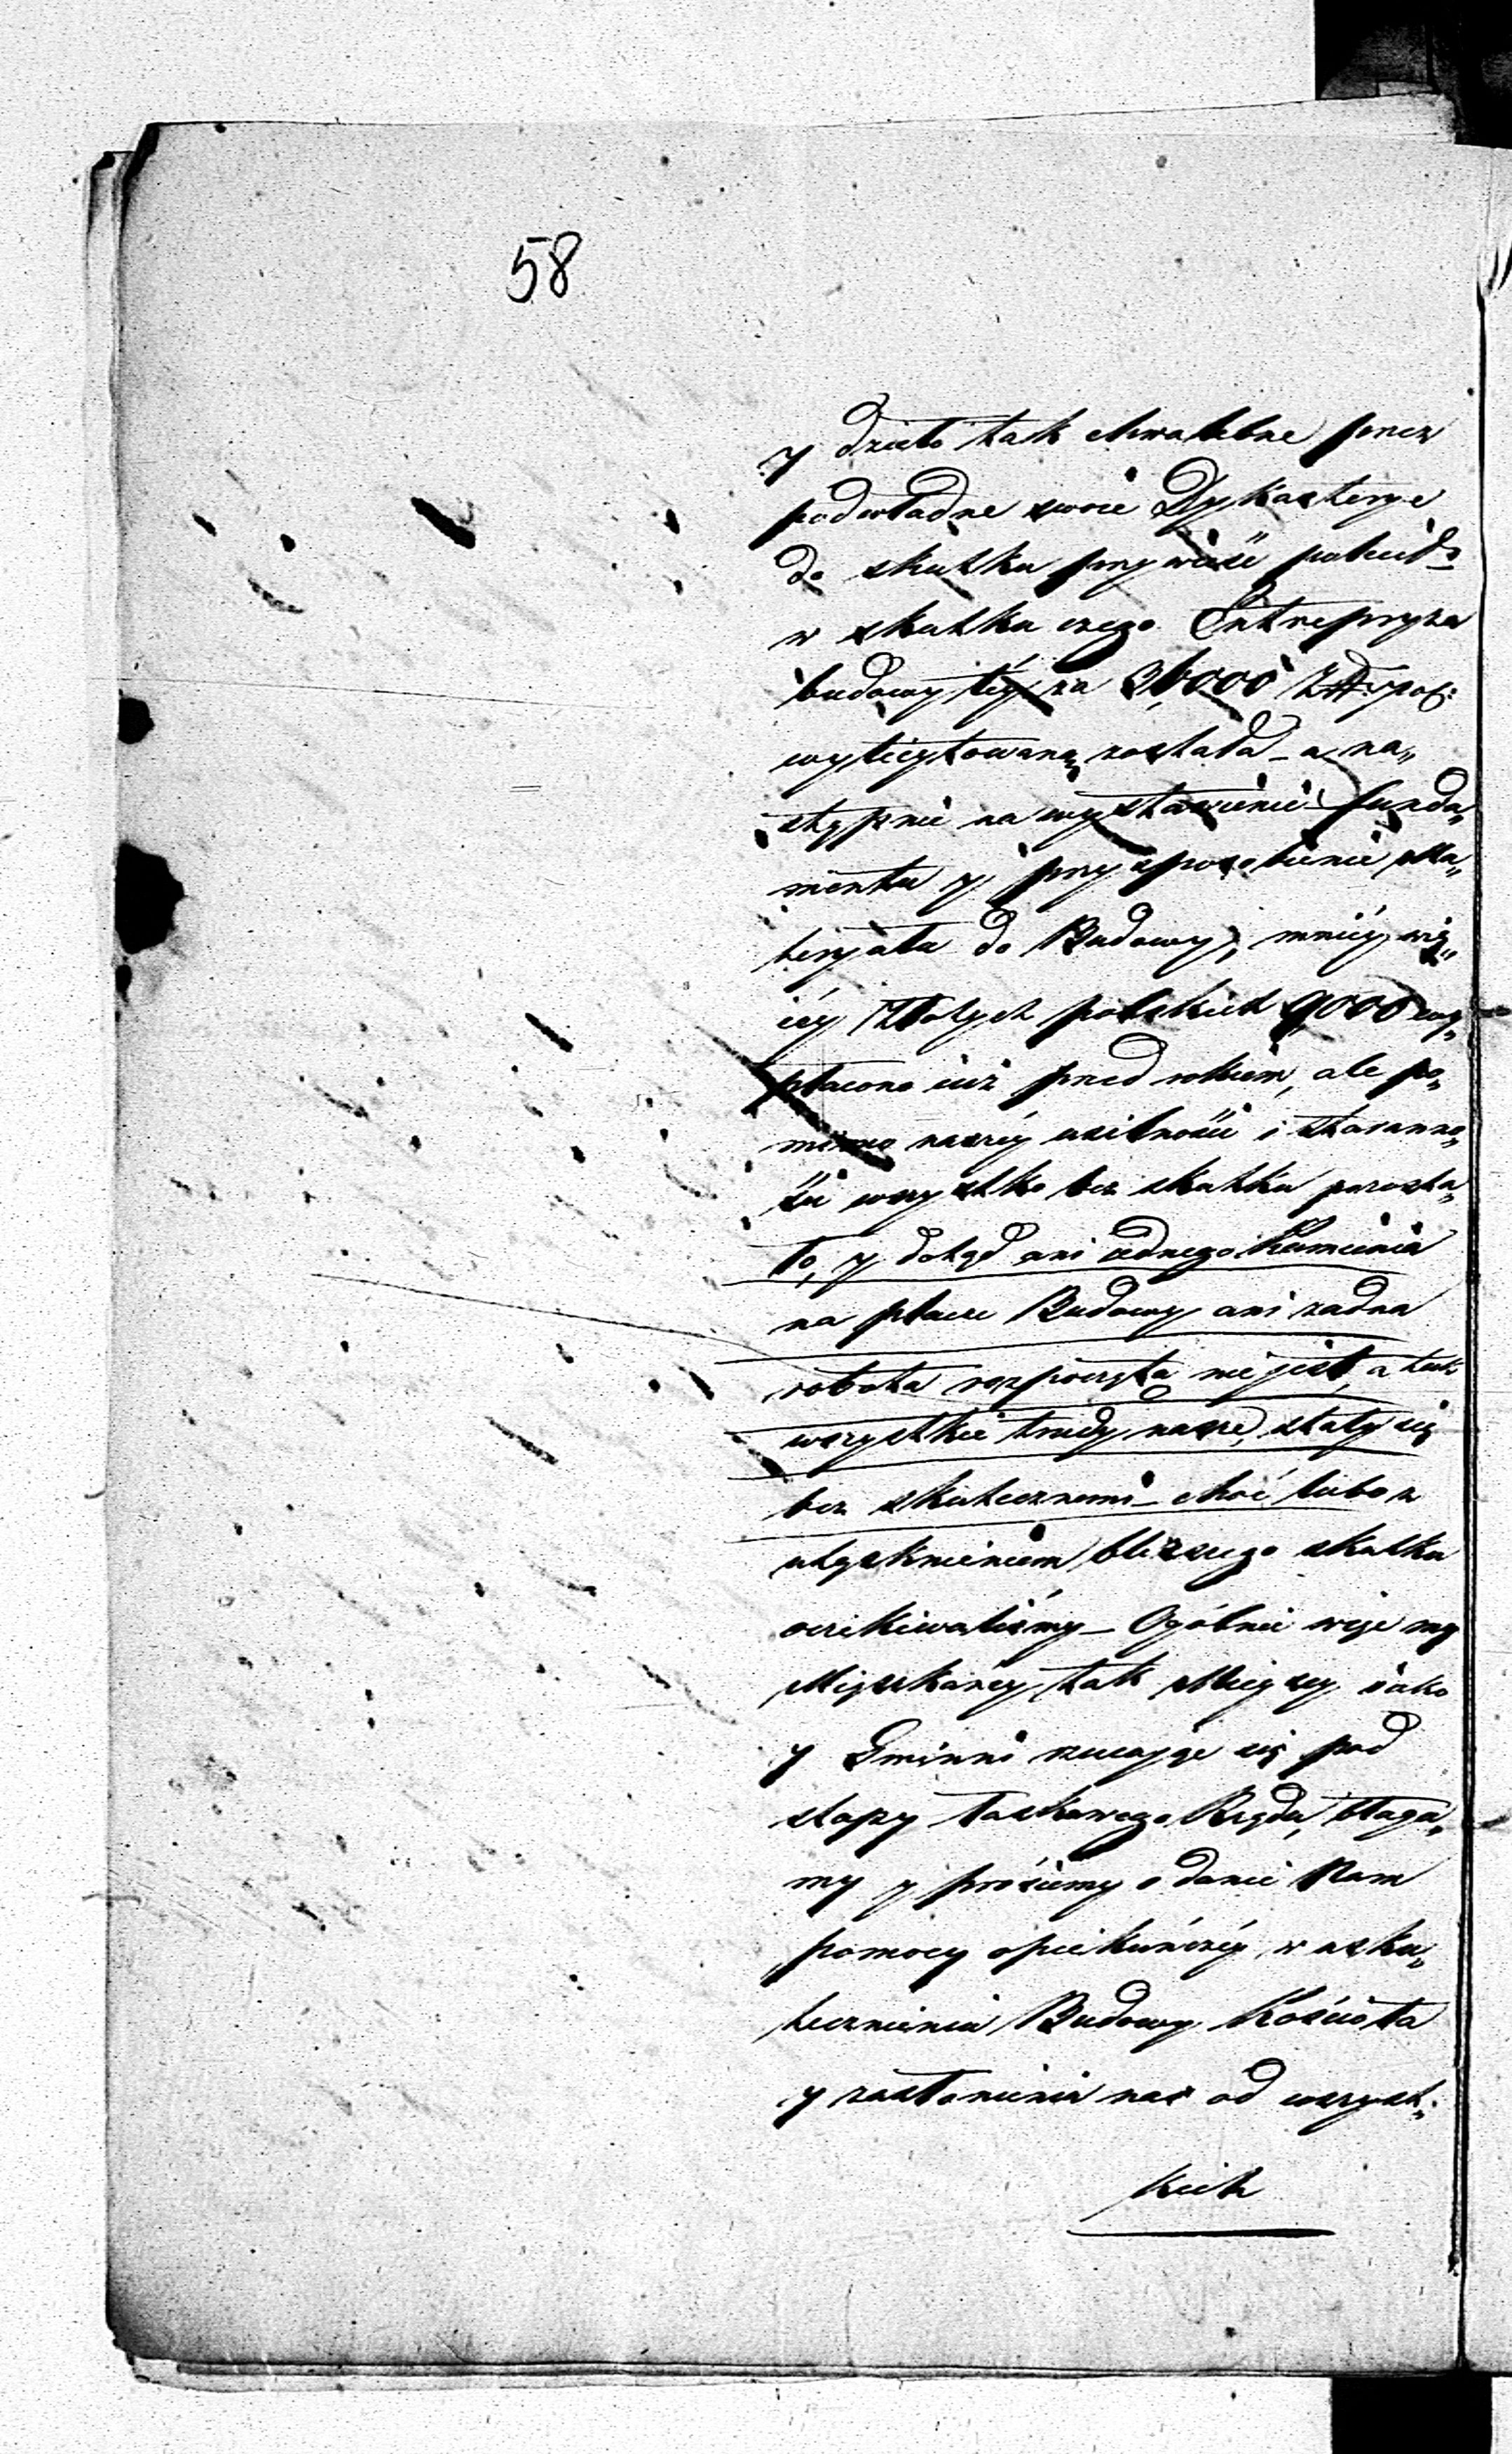 58
y dzieło tak chwalebne przez
podwładne swoie Dykasterye
do skutku przywieść polecił –
w skutku czego Entrepryza
budowy téy za 36000 Zł: pol:
wylicytowaną została – a na„
stępnie na wystawienie funda„
mentu y przysposobienie Ma„
teryału do Budowy, mniéy wię„
céy Złotych polskich 9000 wy„
płacono iuż przed rokiem, ale po„
mimo naszéy usilności i staranno„
ści wszystko bez skutku pozosta„
ło, y dotąd ani iednego Kamienia
na placu Budowy ani żadna
robota rozpoczęta nie jest, a tak
wszystkie trudy nasze, stały się
bez skutecznemi – choć lubo z
utęsknieniem bliższego skutku
oczekiwaliśmy – Ogólnie więc my
Mieszkańcy tak Mieyscy iako
y Gminni rzucając się pod
stopy łaskawego Rządu, błaga„
my y prosiemy o danie Nam
pomocy opiekuńczéy w usku„
tecznieniu Budowy Kościoła
y zasłonienia nas od wszyst„
kich